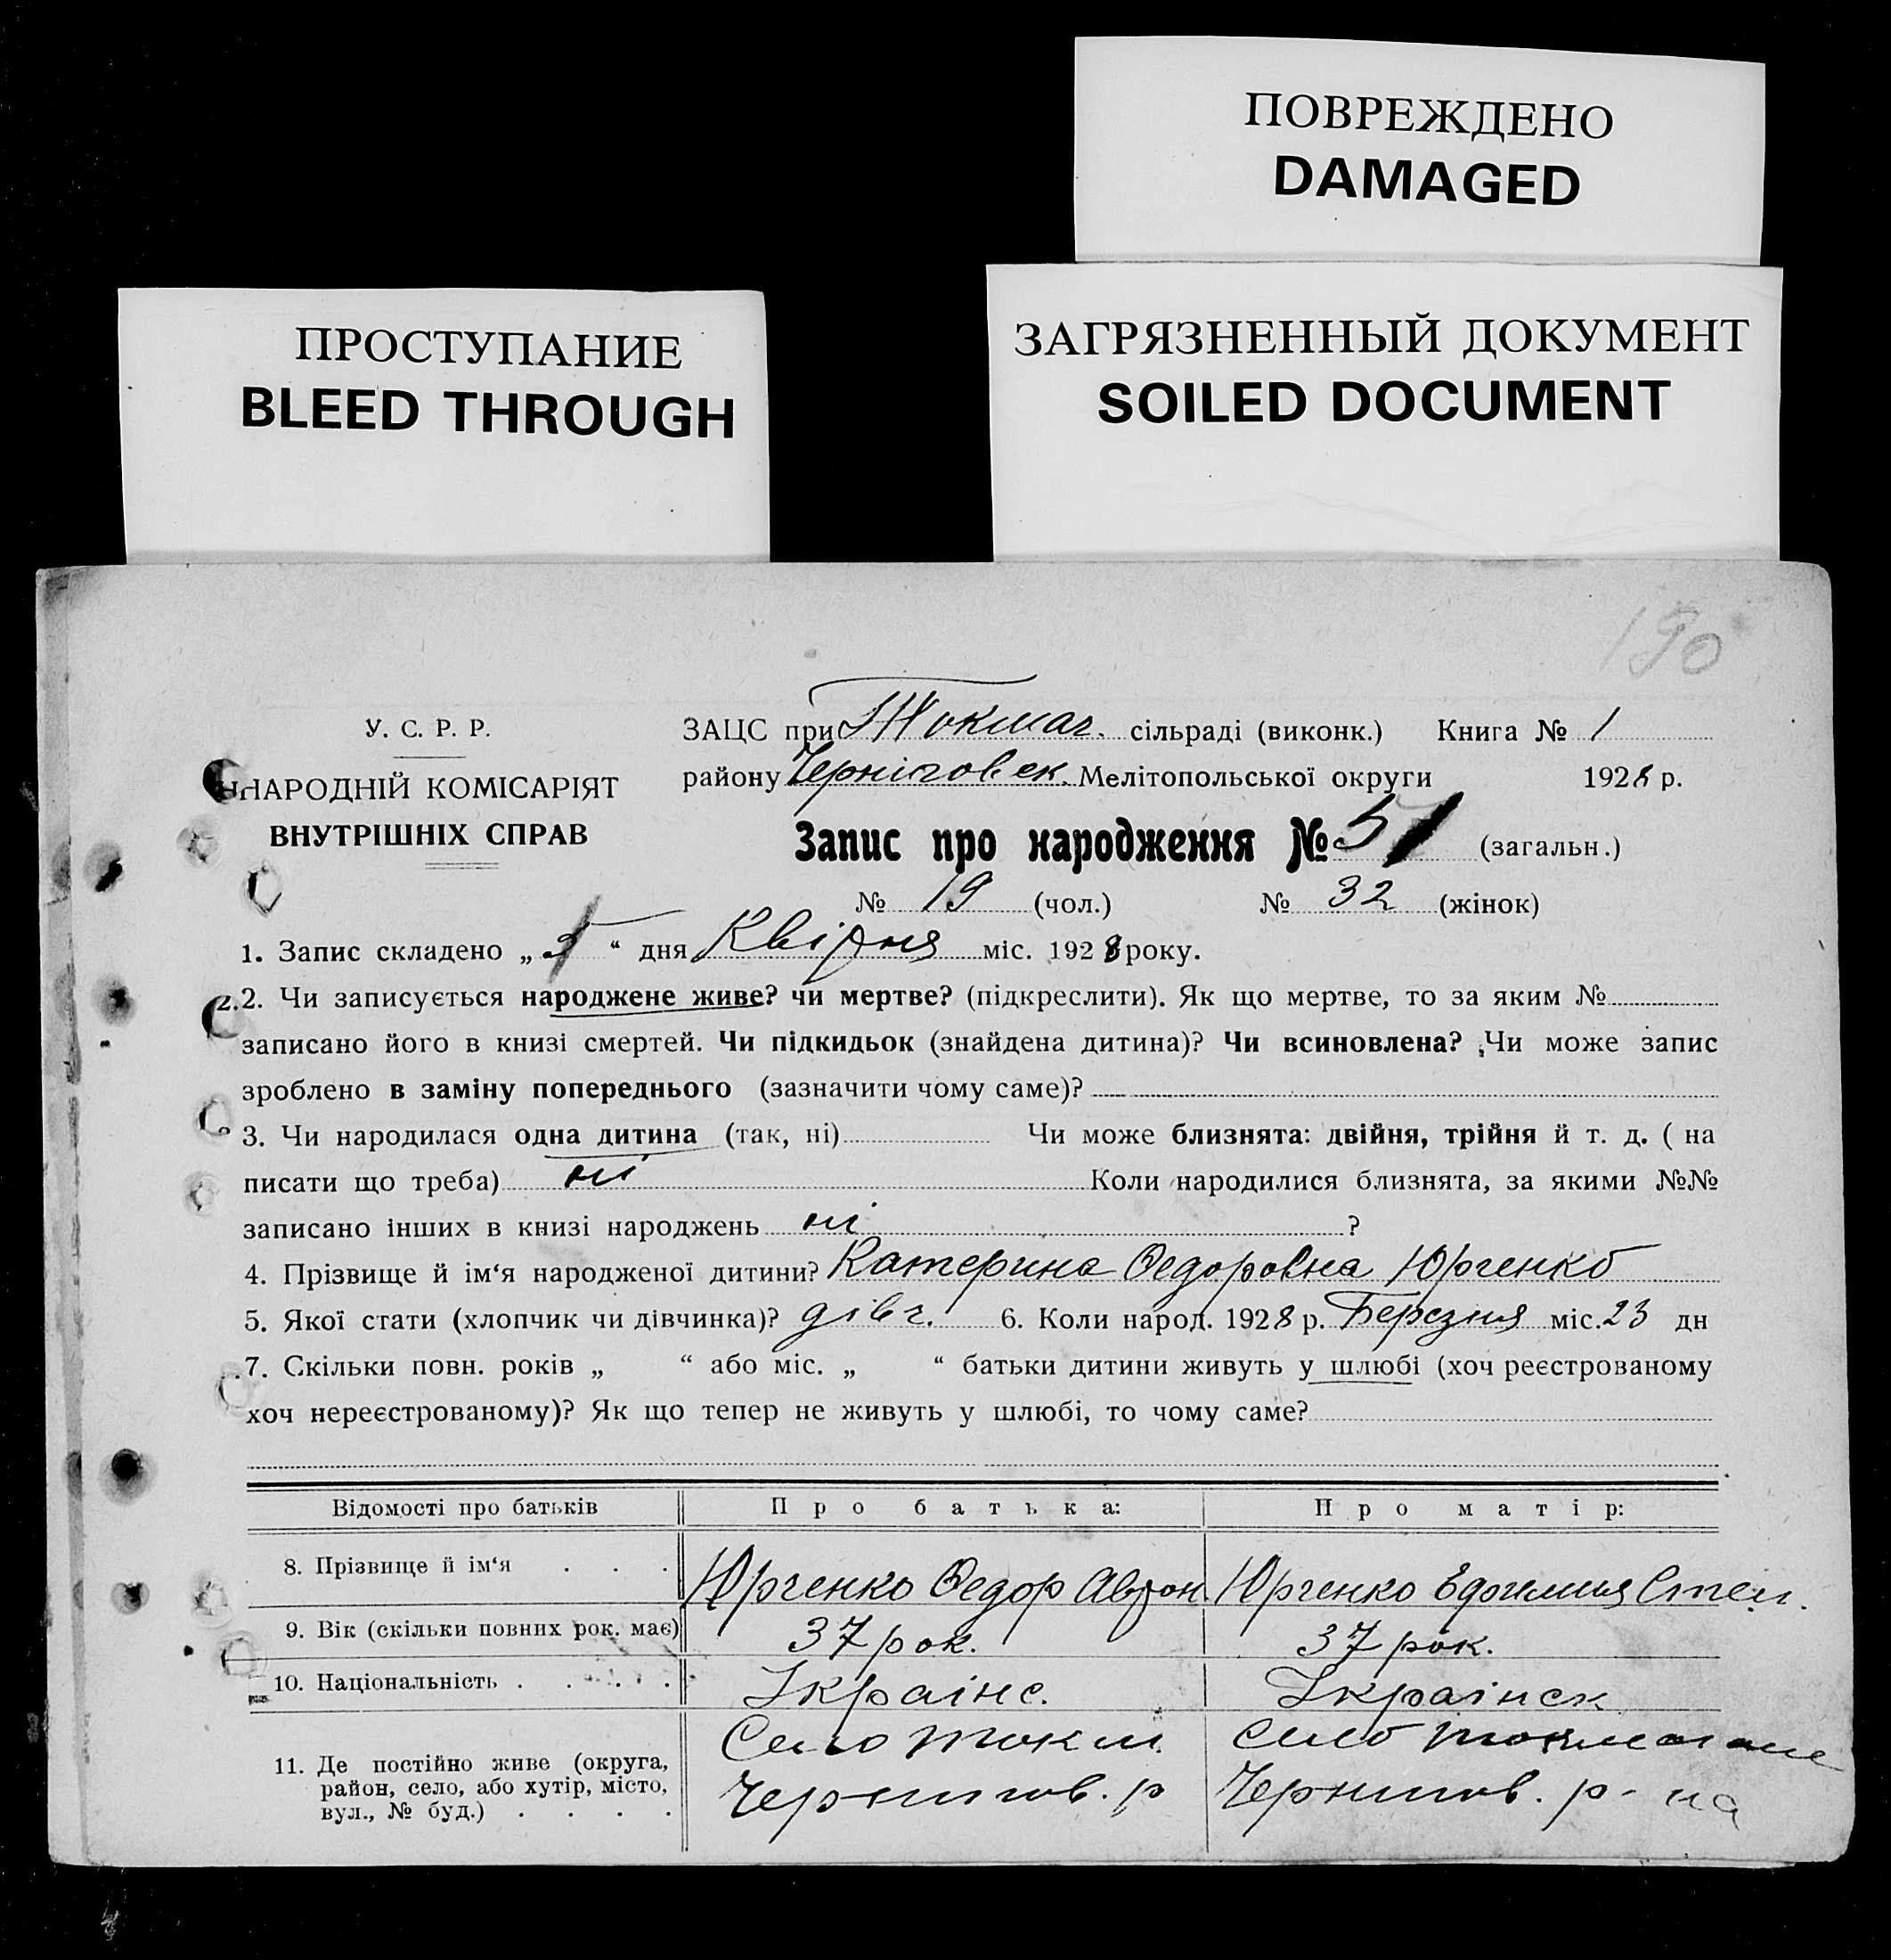 ПОВРЕЖДЕНО
DAMAGED
ПРОСТУПАНИЕ
BLEED THROUGH
ЗАГРЯЗНЕННЫЙ ДОКУМЕНТ
SOILED DOCUMENT
190
У. С. Р. Р.
НАРОДНІЙ КОМІСАРІЯТ
ВНУТРІШНІХ СПРАВ
ЗАЦС при Токмач. сільраді (виконк.) Книга № 1
району Черніговск. Мелітопольської округи 1928 р.
Запис про народження № 51 (загальн.)
№ 19 (чол.) № 32 (жінок)
1. Запис складено „ “ дня Квітня міс. 1928 року.
2. Чи записується народжене живе? чи мертве? (підкреслити). Як що мертве, то за яким №
записано його в книзі смертей. Чи підкидьок (знайдена дитина)? Чи всиновлена? Чи може запис
зроблено в заміну попереднього (зазначити чому саме)?
3. Чи народилася одна дитина (так, ні) Чи може близнята: двійня, трійня й т. д. ( на
писати що треба) ні Коли народилися близнята, за якими №№
записано інших в книзі народжень ні ?
4. Прізвище й ім‘я народженої дитини? Катерина Федоровна Юрченко
5. Якої стати (хлопчик чи дівчинка)? дівч. 6. Коли народ. 1928 р. Березня міс. 23 дн
7. Скільки повн. років „ “ або міс. „ “ батьки дитини живуть у шлюбі (хоч реєстрованому
хоч нереєстрованому)? Як що тепер не живуть у шлюбі, то чому саме?
Відомості про батьків Про батька: Про матір:
8. Прізвище й ім‘я . . . Юрченко Федор Юрченко Степ.
9. Вік (скільки повних рок. має) 37 рок. 37 рок.
10. Національність . . . . . Украінс. Украінск
11. Де постійно живе (округа,
район, село, або хутір, місто,
вул., № буд.) . . . .
Село Токм.
Чернигов. р
Село
Чернигов. р-на